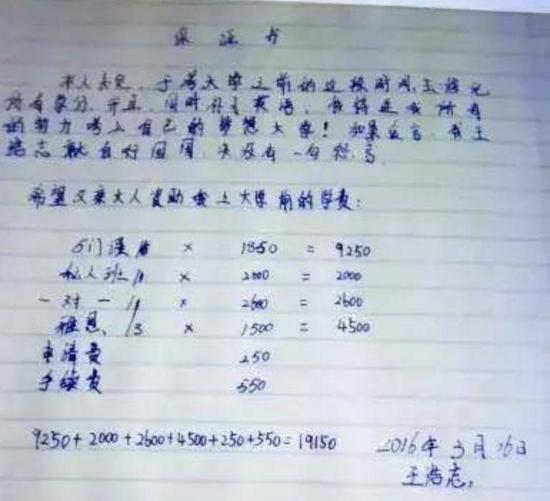 保证书
本人承诺,于考大学之前的这段时间,去修完
所有学分,并且,同时
的努力考上自己的梦想大学!如果
浩志就自行回国,决没有一句怨言
希望父亲大人资助我上大学前的学费:
5门课 × 1850 = 9250
私人班/1 × 2000 = 2000
一对一/1 × 2600 = 2600
雅思/3 × 1500 = 4500
申请费 250
手续费 550
9250+2000+2600+4500+250+550=19150
2016年3月16日
王浩志,